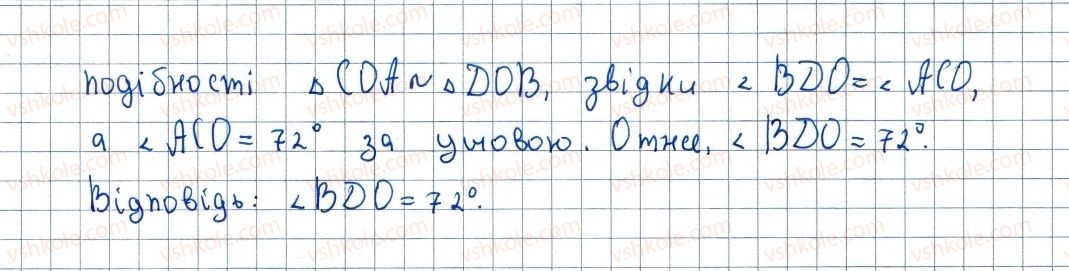 подібності △COA ~ △DOB, звідки ∠BDO = ∠ACO,
а ∠ACO = 72° за умовою. Отже, ∠BDO = 72°.
Відповідь: ∠BDO = 72°.